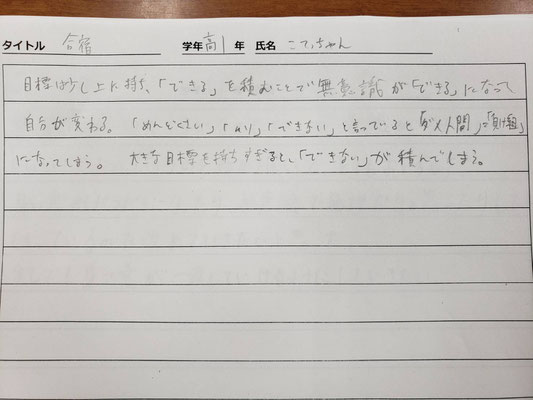 タイトル 合宿 学年 高1 年 氏名 こてっちゃん
目標は少し上に持ち、「できる」を積むことで無意識が「できる」になって
自分が変わる。「めんどくさい」「ムリ」「できない」と言っていると「ダメ人間」に「負け組」
になってしまう。 大きな目標を持ちすぎると、「できない」が積んでしまう。